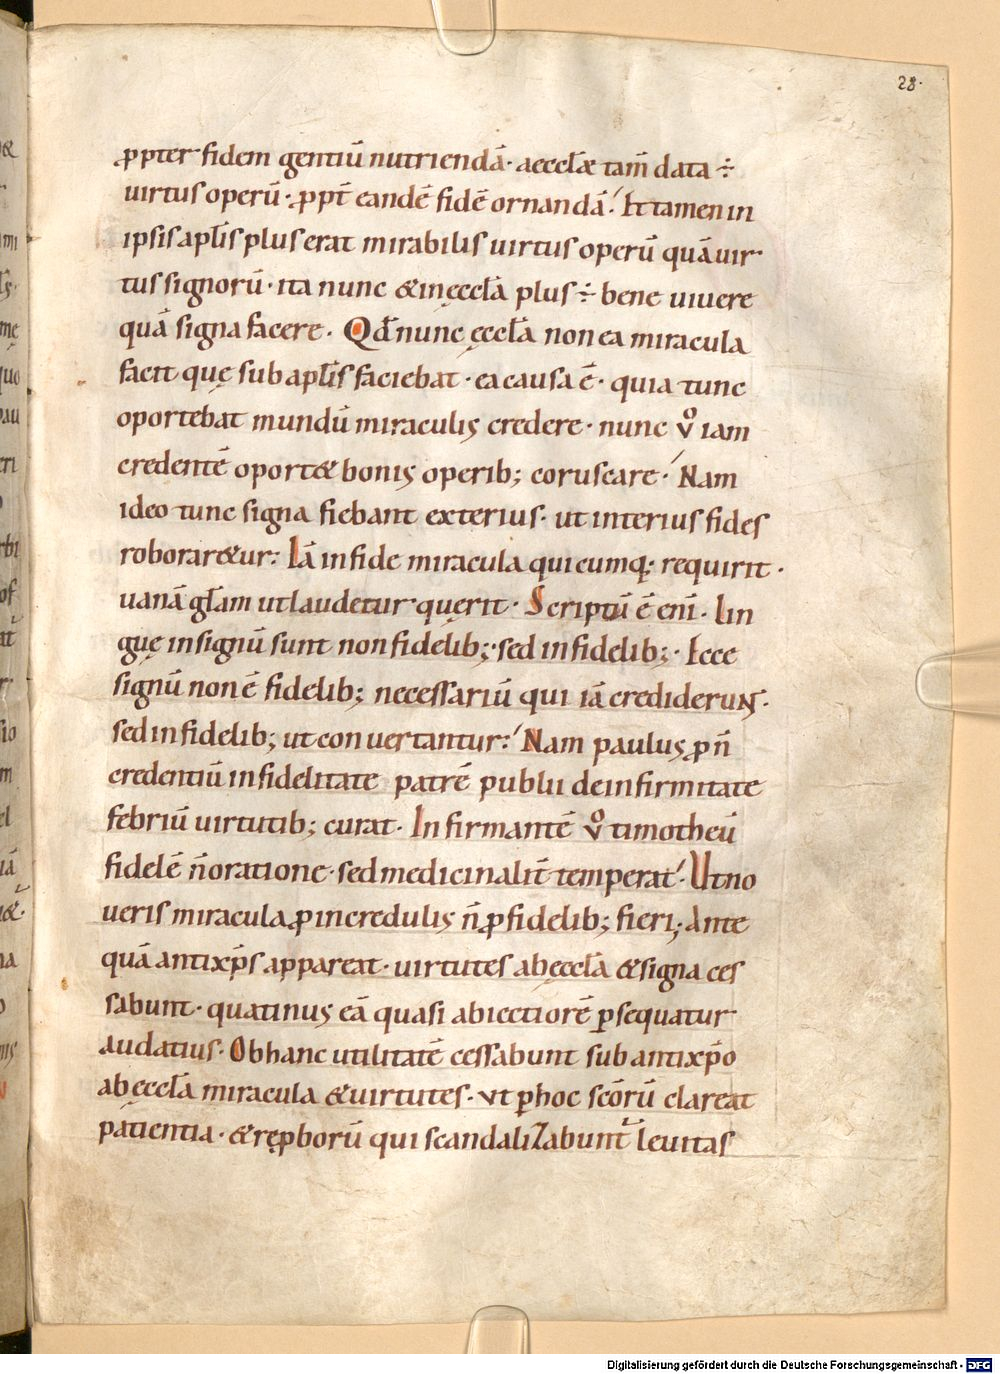 28.
ꝓpter fidem gentiū nutriendā· aecclæ tam̄ data ÷
uirtus operū· ꝓpt̄ eandē fidē ornandā.' Et tamen in
ipsis aplīs plus erat mirabilis uirtus operū quā uir
tus signorū· ita nunc & in ęcclā plus ÷ bene uiuere
quā signa facere. Qđ nunc ęcclā non ea miracula
facit quę sub aplīs faciebat· ea causa ē· quia tunc
oportebat mundū miraculis credere· nunc v̊ iam
credentē oport& bonis operib; coruscare.' Nam
ideo tunc signa fiebant exterius· ut interius fides
roborar&ur: Iā in fide miracula quicumq; requirit·
uanā gl̄am ut laudetur querit· Scriptū ē eni̅· Lin
guę in signū sunt non fidelib;· sed infidelib;· Ecce
signū non ē fidelib; necessariū qui iā crediderunt·
sed infidelib; ut conuertantur:' Nam paulus ꝓ n̄
credentiū infidelitate patrē publii de infirmitate
febriū uirtutib; curat· Infirmantē v̊ timotheū
fidelē n̄ oratione· sed medicinalit̄ temperat.' Ut no
ueris miracula ꝓ incredulis n̄ ꝓ fidelib; fieri; Ante
quā antixp̄s appareat· uirtutes ab ęcclā & signa ces
sabunt· quatinus eā quasi abiectiorē ꝑsequatur
audatius· Ob hanc utilitatē cessabunt sub antixp̄o
ab ęcclā miracula & uirtutes· vt ꝑ hoc scōrū clareat
patientia· & reꝓborū qui scandalizabunt̄ leuitas
Digitalisierung gefördert durch die Deutsche Forschungsgemeinschaft - DFG